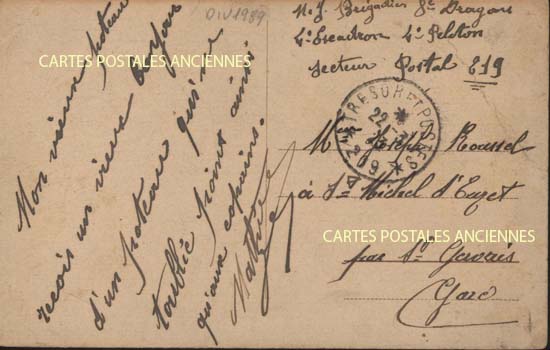 DIV1989
M. J. Brigadier 8e Dragons
4e Escadron 4e Peloton
Secteur Postal 219
CARTES POSTALES ANCIENNES
Mon vieux poteau
reçois un vieux bonjour
d'un poteau qui ne
t'oublie point ainsi
qu'aux copains.
Mathieu
TRESOR ET POSTES
22
* 209 *
M Joseph Roussel
à St Michel d'Euzet
CARTES POSTALES ANCIENNES
par St Gervais
Gard